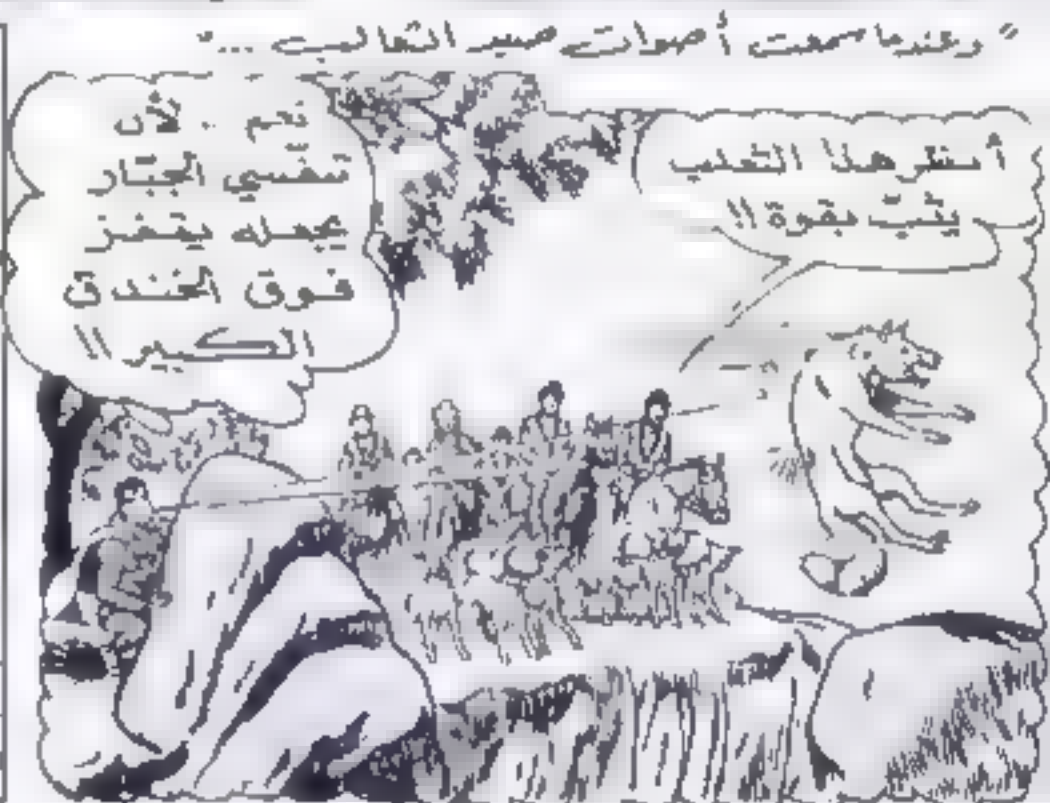 "وعندما سمعت أصوات صيد الثعالب ..."
أنظر هذا الثعلب
يثبّ بقوة !!
نعم .. لأن
تنفّسي الجبّار
يجعله يقفز
فوق الخندق
الكبير !!